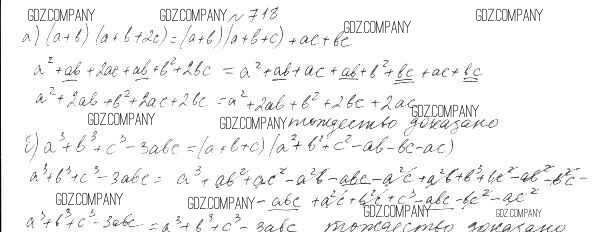 GDZ.COMPANY GDZ.COMPANY № 718 GDZ.COMPANY GDZ.COMPANY
GDZ.COMPANY
а) (a+b)(a+b+2c) = (a+b)(a+b+c) + ac + bc
a² + ab + 2ac + ab + b² + 2bc = a² + ab + ac + ab + b² + bc + ac + bc
a² + 2ab + b² + 2ac + 2bc = a² + 2ab + b² + 2bc + 2ac
GDZ.COMPANY GDZ.COMPANY тождество доказано GDZ.COMPANY
б) a³ + b³ + c³ - 3abc = (a+b+c)(a² + b² + c² - ab - bc - ac)
a³ + b³ + c³ - 3abc = a³ + ab² + ac² - a²b - abc - a²c + a²b + b³ + bc² - ab² - b²c -
GDZ.COMPANY GDZ.COMPANY - abc + a²c + b²c + c³ - abc - bc² - ac²
GDZ.COMPANY GDZ.COMPANY
a³ + b³ + c³ - 3abc = a³ + b³ + c³ - 3abc тождество доказано